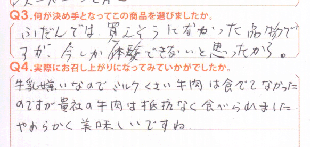 Q3.何が決め手となってこの商品を選びましたか。
ふだんでは、買えそうになかった品物で
すが、今しか体験できないと思ったから。
Q4.実際にお召し上がりになってみていかがでしたか。
牛乳嫌いなので、ミルクくさい牛肉は食べてなかった
のですが貴社の牛肉は抵抗なく食べられました
やわらかく美味しいですね